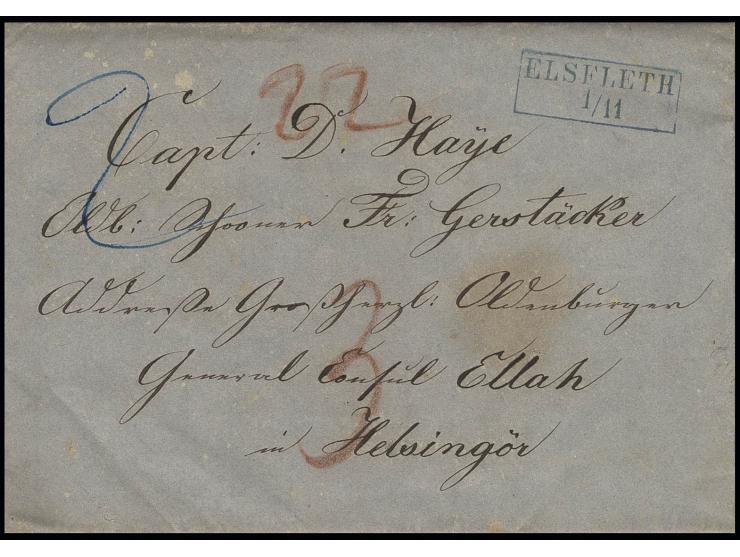 ELSFLETH
1/11
22
2
Capt: D. Haÿe
Oldb: Schooner Fr: Gerstäcker
Addresse Großherzl: Oldenburger
3
General Consul Ellah
in Helsingör